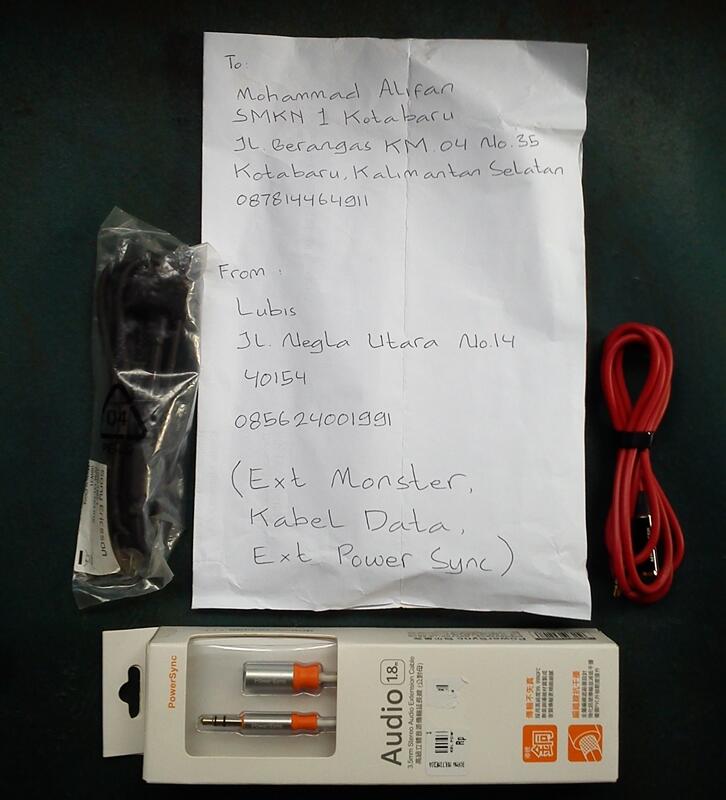 To:
Mohammad Alifan
SMKN 1 Kotabaru
JL. Berangas KM.04 No.35
Kotabaru, Kalimantan Selatan
087814464911
From :
Lubis
JL. Negla Utara No.14
40154
085624001991
(Ext Monster,
Kabel Data,
Ext Power Sync)
04
Sony Ericsson
PowerSync
Audio 1.8m
3.5mm Stereo Audio Extension Cable
高級立體音源傳輸延長線 (公對母)
Rp
傳輸不失真
銅
編織線抗干擾